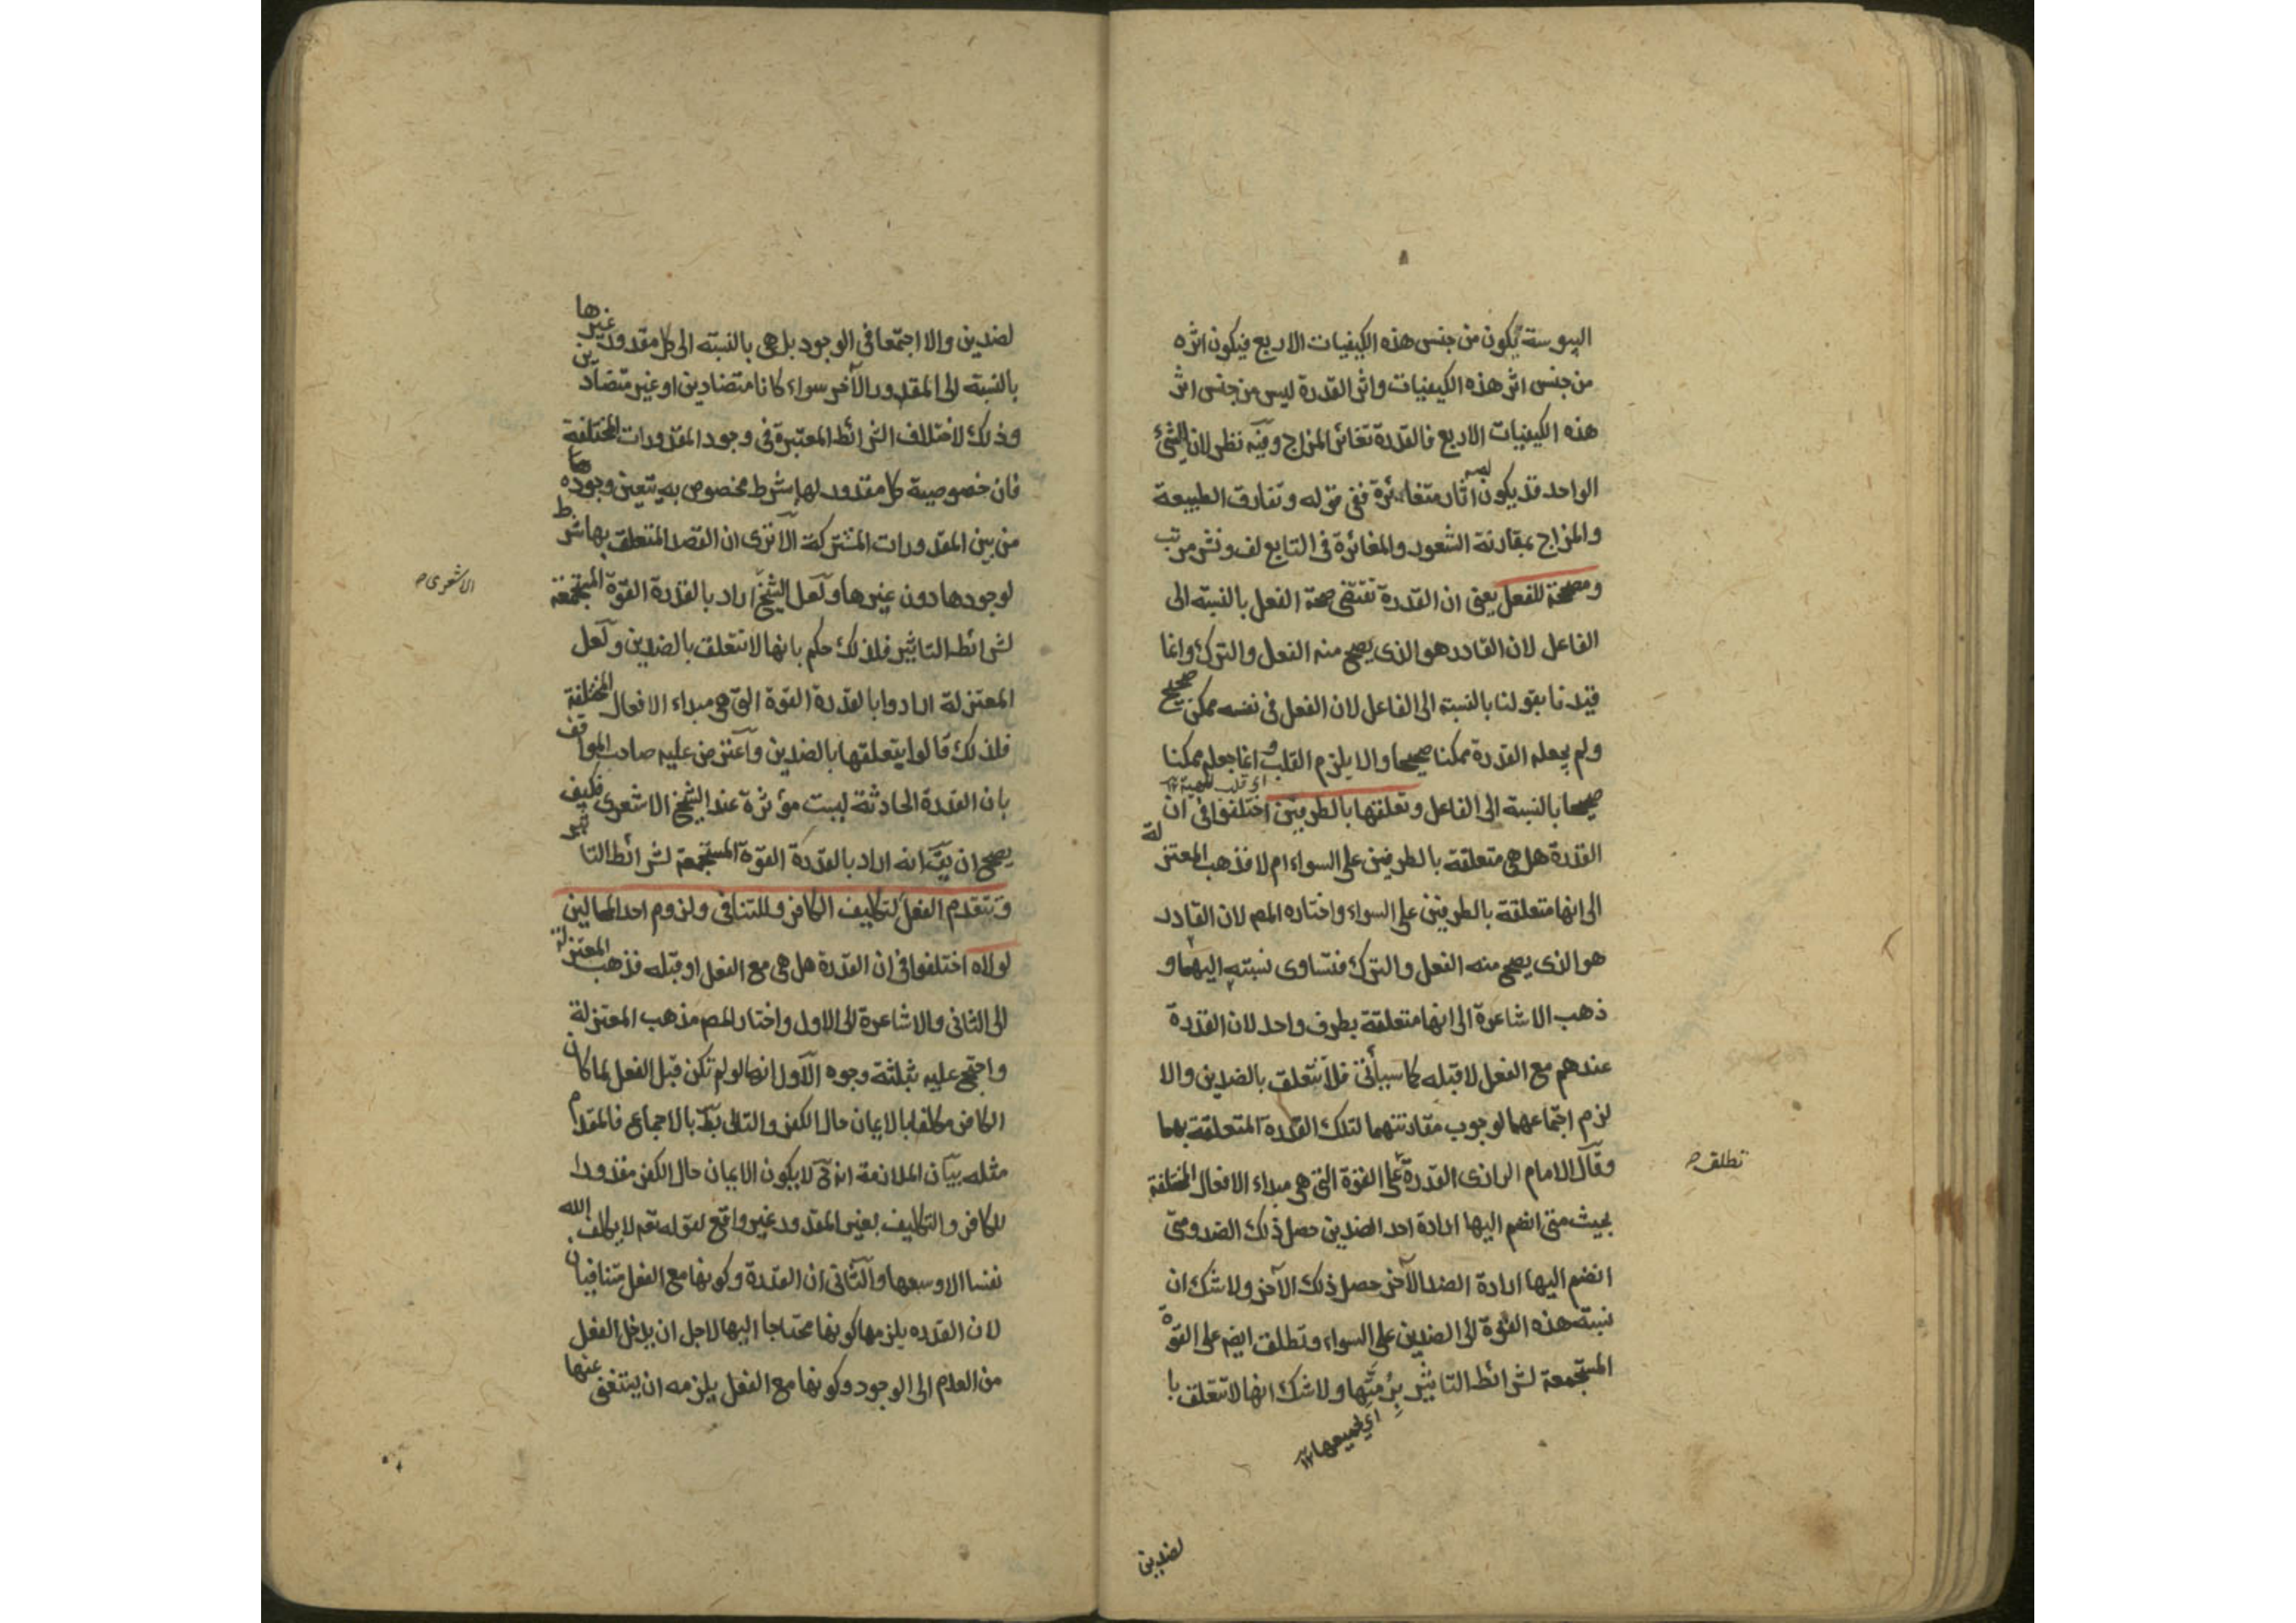 اليبوسة يكون من جنس هذه الكيفيات الاربع فيكون اثره
من جنس اثر هذه الكيفيات واثر القدرة ليس من جنس اثر
هذه الكيفيات الاربع فالقدرة تغائر المزاج وفيه نظر لان الشئ
الواحد قد يكون له آثار متغائرة ففى قوله وتفارق الطبيعة
والمزاج بمقارنة الشعور والمغائرة فى التابع لف ونشر مرتب
ومصححة للفعل يعنى ان القدرة تقتضى صحة الفعل بالنسبة الى
الفاعل لان القادر هو الذى يصح منه الفعل والترك وانما
قيدنا بقولنا بالنسبة الى الفاعل لان الفعل فى نفسه ممكن صحيح
ولم يجعله القدرة ممكنا صحيحا والا يلزم القلب وانما جعله ممكنا
صحيحا بالنسبة الى الفاعل وتعلقها بالطرفين اختلفوا فى ان
القدرة هل هى متعلقة بالطرفين على السواء ام لا فذهب المعتزلة
الى انها متعلقة بالطرفين على السواء واختاره المص لان القادر
هو الذى يصح منه الفعل والترك فتساوى نسبته اليهما و
ذهب الاشاعرة الى انها متعلقة بطرف واحد لان القدرة
عندهم مع الفعل لا قبله كما سيأتى فلا تتعلق بالضدين والا
لزم اجتماعهما لوجوب مقارنتهما لتلك القدرة المتعلقة بهما
وقال الامام الرازى القدرة على القوة التى هى مبداء الافعال المختلفة
تطلق
بحيث متى انضم اليها ارادة احد الضدين حصل ذلك الضد ومتى
انضم اليها ارادة الضد الآخر حصل ذلك الآخر ولا شك ان
نسبة هذه القوة الى الضدين على السواء وتطلق ايضم على القوة
المستجمعة لشرائط التاثير برمتها ولا شك انها لا تتعلق با
اى بجميعها ١٢
لضدين
لضدين والا اجتمعا فى الوجود بل هى بالنسبة الى كل مقدور غيرها
بالنسبة الى المقدور الآخر سواء كانا متضادين او غير متضادين
وذلك لاختلاف الشرائط المعتبرة فى وجود المقدورات المختلفة
فان خصوصية كل مقدور لها شرط مخصوص به يتعين وجودها
من بين المقدورات المشتركة الا ترى ان القصد المتعلق بها شرط
لوجودها دون غيرها ولعل الشيخ اراد بالقدرة القوة المستجمعة
الاشعرى
لشرائط التاثير فلذلك حكم بانها لا تتعلق بالضدين ولعل
المعتزلة ارادوا بالقدرة القوة التى هى مبداء الافعال المختلفة
فلذلك قالوا بتعلقها بالضدين واعترض عليه صاحب المواقف
بان القدرة الحادثة ليست مؤثرة عند الشيخ الاشعرى فكيف
يصح ان يق انه اراد بالقدرة القوة المستجمعة لشرائط التاثير
وتتقدم الفعل لتكليف الكافر وللتنافى ولزوم احد المحالين
لولاه اختلفوا فى ان القدرة هل هى مع الفعل او قبله فذهب المعتزلة
الى الثانى والاشاعرة الى الاول واختار المص مذهب المعتزلة
واحتج عليه بثلثة وجوه الاول انها لو لم تكن قبل الفعل لما كان
الكافر مكلفا بالايمان حال الكفر والتالى بط بالاجماع فالمقدم
مثله بيان الملازمة انه ح لا يكون الايمان حال الكفر مقدورا
للكافر والتكليف بغير المقدور غير واقع لقوله تعم لا يكلف الله
نفسا الا وسعها والثانى ان القدرة وكونها مع الفعل متنافيان
لان القدره يلزمها كونها محتاجا اليها لاجل ان يدخل الفعل
من العدم الى الوجود وكونها مع الفعل يلزمه ان يستغنى عنها